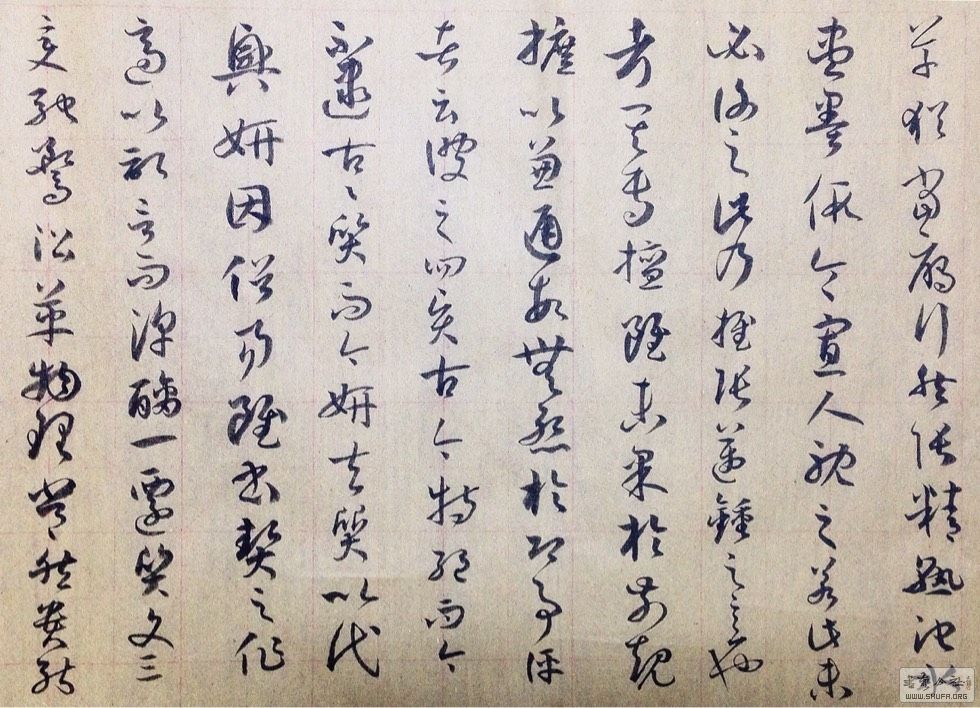 草猶當雁行然張精熟池水
盡墨假令寡人耽之若此未
必謝之此乃推張邁鍾之意也
考其專擅雖未果於前規
摭以兼通故無慙於即事評
者云彼之四賢古今特絕而今
不逮古〻質而今妍夫質以代
興妍因俗易雖書契之作
適以記言而淳醨一遷質文三
變馳騖沿革物理常然貴能
WWW.SHUFA.ORG